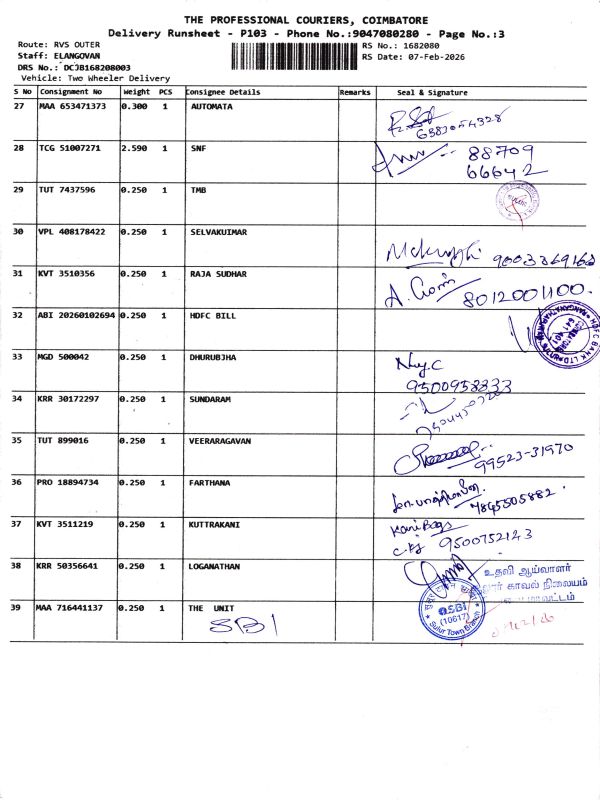 THE PROFESSIONAL COURIERS, COIMBATORE
Delivery Runsheet - P103 - Phone No.:9047080280 - Page No.:3
Route: RVS OUTER
RS No.: 1682080
Staff: ELANGOVAN
RS Date: 07-Feb-2026
DRS No.: DCJB168208003
Vehicle: Two Wheeler Delivery
S No Consignment No Weight PCS Consignee Details Remarks Seal & Signature
27 MAA 653471373 0.300 1 AUTOMATA
28 TCG 51007271 2.590 1 SNF 88709
66642
29 TUT 7437596 0.250 1 TMB
30 VPL 408178422 0.250 1 SELVAKUIMAR
31 KVT 3510356 0.250 1 RAJA SUDHAR 8012001100.
32 ABI 20260102694 0.250 1 HDFC BILL
33 MGD 500042 0.250 1 DHURUBJHA
9500958333
34 KRR 30172297 0.250 1 SUNDARAM
35 TUT 899016 0.250 1 VEERARAGAVAN 99523-31970
36 PRO 18894734 0.250 1 FARTHANA 7845505882.
37 KVT 3511219 0.250 1 KUTTRAKANI Kani Bags
9500752123
38 KRR 50356641 0.250 1 LOGANATHAN உதவி ஆய்வாளர்
காவல் நிலையம்
39 MAA 716441137 0.250 1 THE UNIT
SBI
SBI
(10617)
Sulur Town Branch